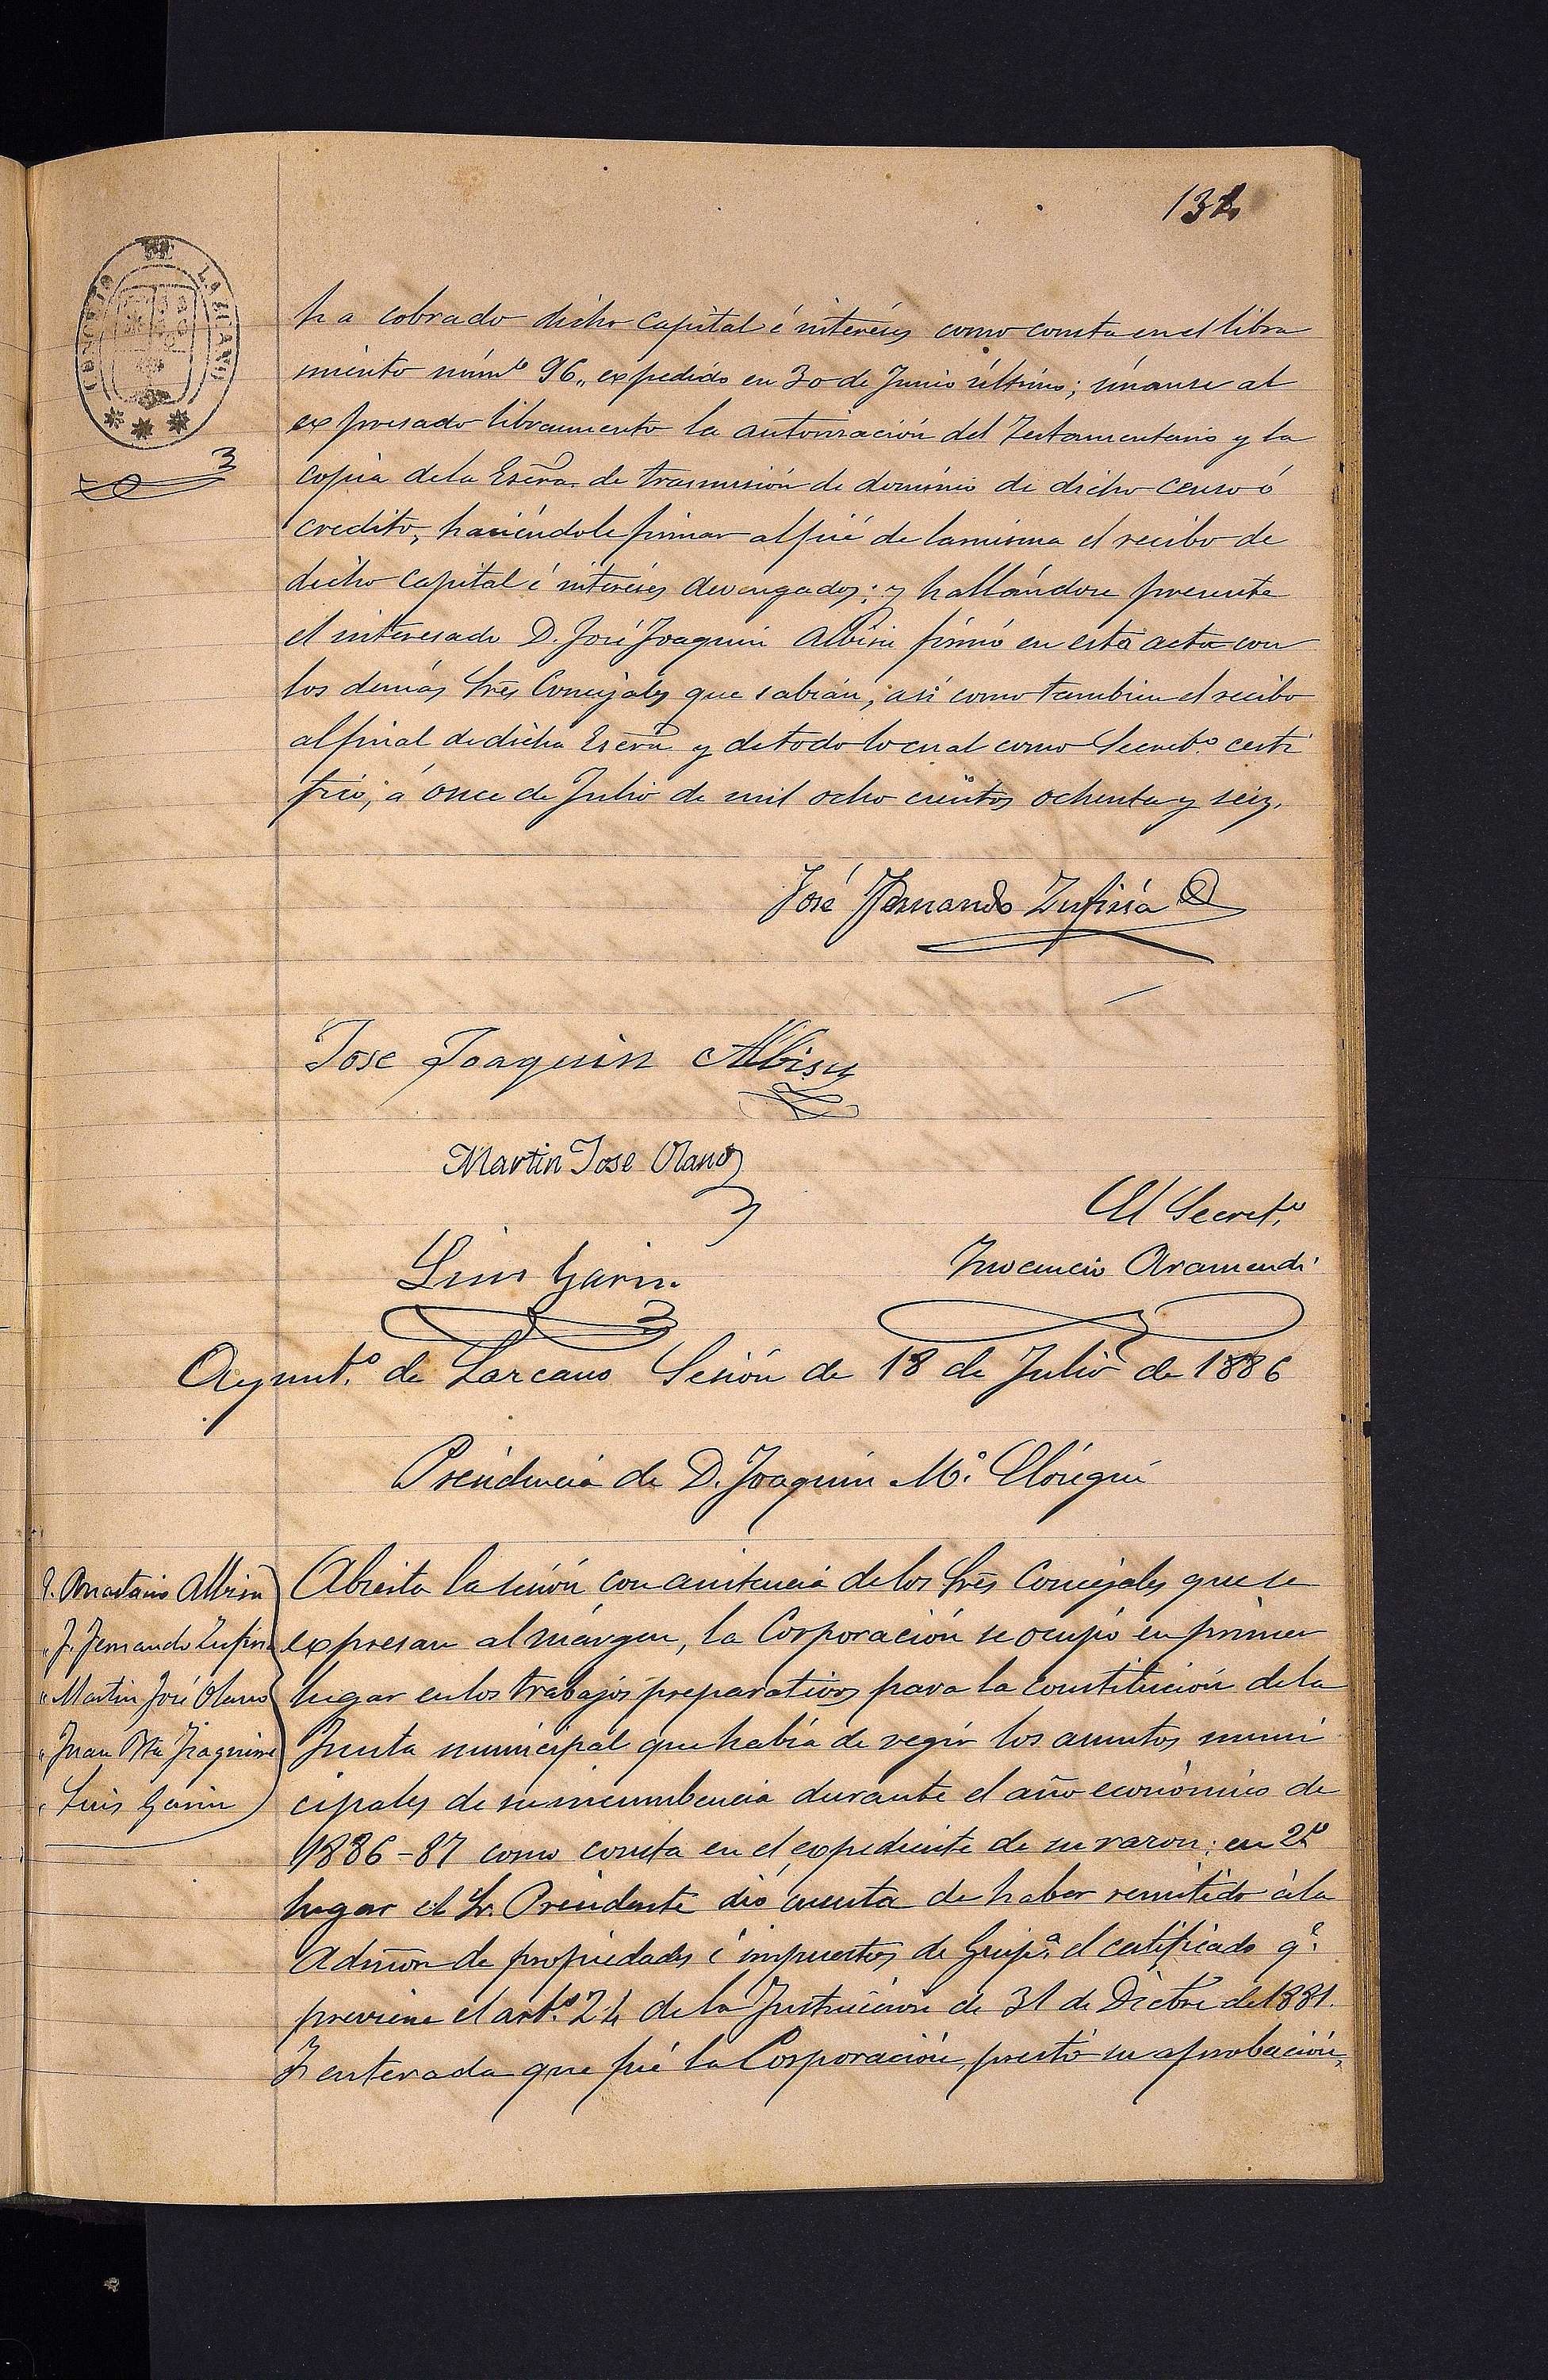 132
CONCEJO DE LAZCANO
ha cobrado dicho capital é interéses como consta en el libra
miento núm.º 96,, expedido en 30 de Junio último; únanse al
expresado libramiento la autorización del Testamentario y la
copia dela Escra. de trasmisión de dominio de dicho censo ó
credito, haciéndole firmar al pié de la misma el recibo de
dicho capital é interéses devengados; y hallándose presente
el interesado D. José Joaquin Albisu firmó en esta acta con
los demás Sres Concejales que sabian, así como tambien el recibo
al final de dicha Escra y de todo lo cual como Secret.º certi
fico, á once de Julio de mil ocho cientos ochenta y seis.
José Fernando Zufiria
Jose Joaquin Albisu
Martin Jose Olano
El Secret.º
Luis Garin
Inocencio Aramendi
Ayunt.º de Lazcano Sesión de 18 de Julio de 1886
Presidencia de D. Joaquin M.ª Elósegui
D. Anastasio Albisu
" J. Fernando Zufiria
" Martin José Olano
" Juan Mª
" Luis Garin
Abierta la sesión con asistencia de los Sres Concejales que se
expresan al márgen, la Corporación se ocupó en primer
lugar en los trabajos preparativos para la constitución de la
Junta municipal que había de regir los asuntos muni
cipales de su incumbencia durante el año económico de
1886-87 como consta en el expediente de su razon; en 2º
lugar el Sr. Presidente dió cuenta de haber remitido á la
Admon de propiedades é impuestos de Guip.ª el certificado q.e
previene el art.º 24 de la Instrucción de 31 de Dicbre de 1881.
Y enterada que fué la Corporación, prestó su aprobación,